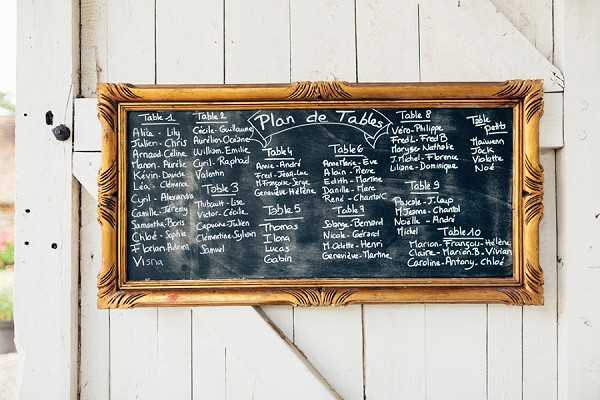 Plan de Tables
Table 1
Alice - Lily
Julien - Chris
Arnaud - Céline
Manon - Aurélie
Kévin - Davide
Léa - Clémence
Cyril - Alexandra
Camille - Jérémy
Samantha - Boris
Chloé - Sophie
Florian - Adrien
Visna
Table 2
Cécile - Guillaume
Aurélien - Océane
William - Emilie
Cyril - Raphael
Valentin
Table 3
Thibault - Lise
Victor - Cécile
Capucine - Julien
Clémentine - Sylvain
Samuel
Table 4
Annie - André
Fred - Jean-Luc
M. Françoise - Serge
Geneviève - Hélène
Table 5
Thomas
Ilona
Lucas
Gabin
Table 6
AnneMarie - Eve
Alain - Pierre
Edith - Martine
Danielle - Marc
René - Chantal
Table 7
Solange - Bernard
Nicole - Gérard
M. Odette - Henri
Geneviève - Martine
Table 8
Véro - Philippe
Fred L. - Fred B
Maryse - Nathalie
J. Michel - Florence
Liliane - Dominique
Table 9
Pascale - J. Loup
M. Jeanne - Chantal
Noëlle - André
Michel
Table 10
Marion - François - Hélène
Claire - Marion. B - Vivian
Caroline - Antony - Chloé
Table
petits
Maiwenn
Jack
Violette
Noé